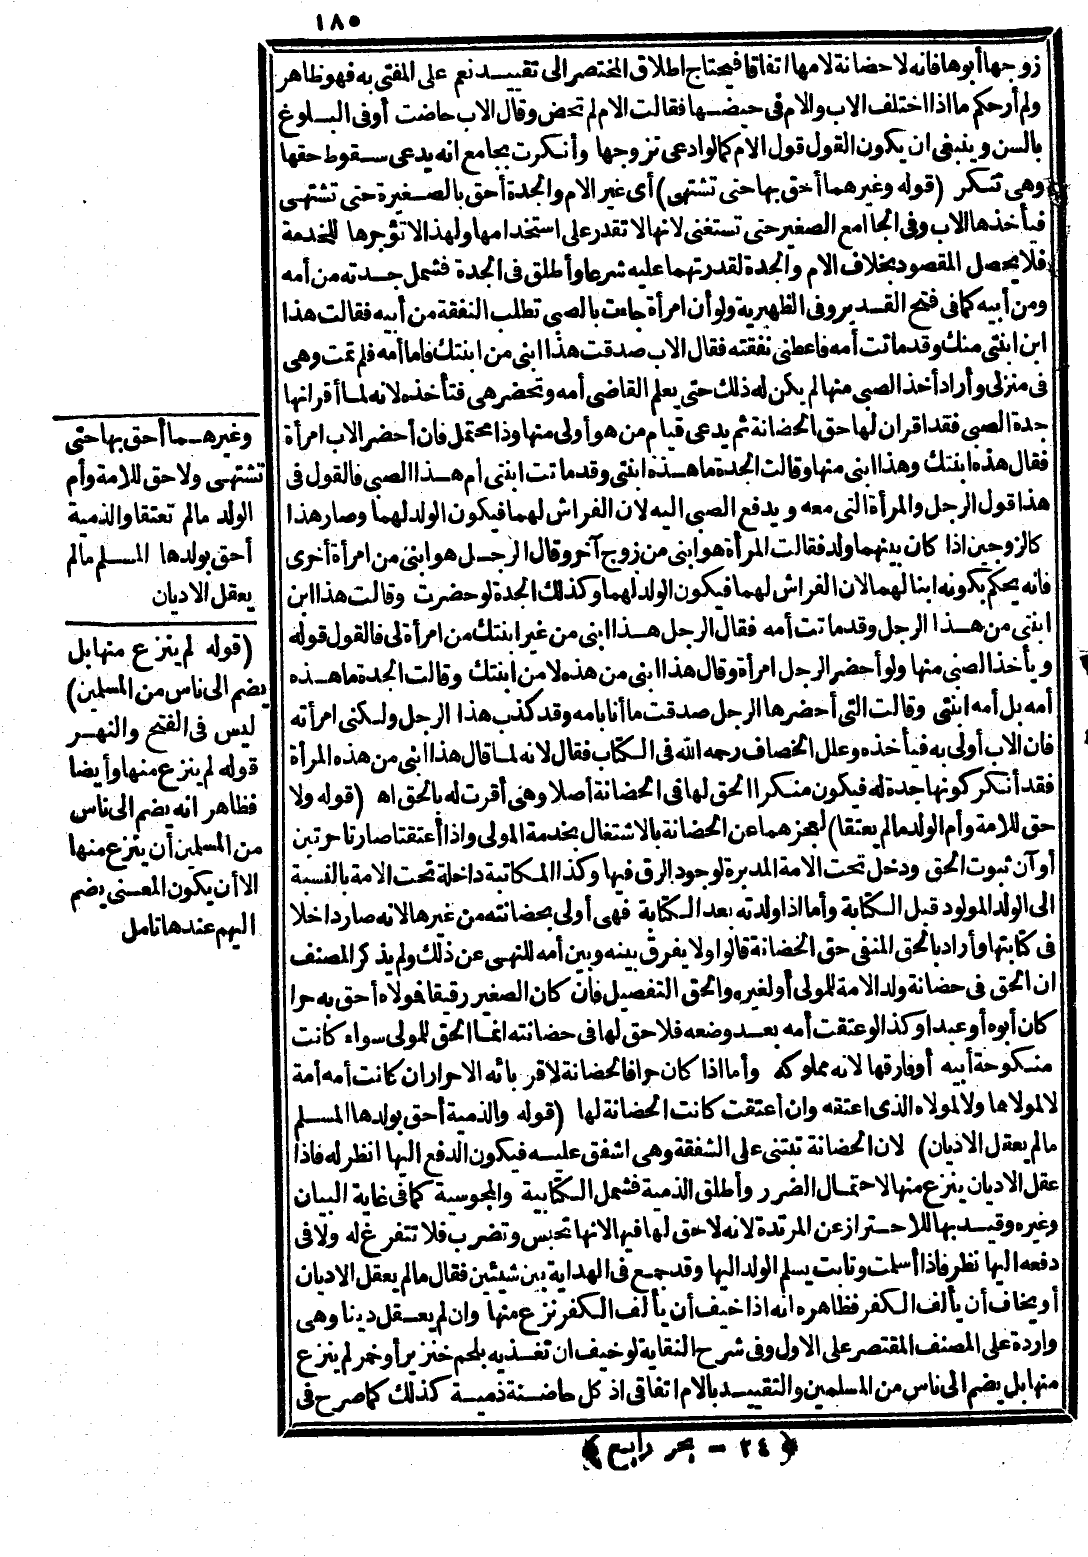 ١٨٥
زوجها أبوها فانه لا حضانة لامها اتفاقا فيحتاج اطلاق المختصر الى تقييد نعم على المفتى به فهو ظاهر
ولم أر حكم ما اذا اختلف الاب والام فى حيضها فقالت الام لم تحض وقال الاب حاضت أو فى البلوغ
بالسن وينبغى ان يكون القول قول الام كما لو ادعى تزوجها وأنكرت بجامع انه يدعى سقوط حقها
وهى تنكر (قوله وغيرهما أحق بها حتى تشتهى) أى غير الام والجدة أحق بالصغيرة حتى تشتهى
فيأخذها الاب وفى الجامع الصغير حتى تستغنى لانها لا تقدر على استخدامها ولهذا لا تؤجرها للخدمة
فلا يحصل المقصود بخلاف الام والجدة لقدرتهما عليه شرعا وأطلق فى الجدة فشمل جدته من أمه
ومن أبيه كما فى فتح القدير وفى الظهيرية ولو أن امرأة جاءت بالصبى تطلب النفقة من أبيه فقالت هذا
ابن ابنتى منك وقد ماتت أمه فاعطنى نفقته فقال الاب صدقت هذا ابنى من ابنتك فاما أمه فلم تمت وهى
فى منزلى وأراد أخذ الصبى منها لم يكن له ذلك حتى يعلم القاضى أمه وتحضر هى فتأخذه لانه لما أقر انها
جدة الصبى فقد اقر ان لها حق الحضانة ثم يدعى قيام من هو أولى منها وذا محتمل فان أحضر الاب امرأة
فقال هذه ابنتك وهذا ابنى منها وقالت الجدة ما هذه ابنتى وقد ماتت ابنتى أم هذا الصبى فالقول فى
هذا قول الرجل والمرأة التى معه ويدفع الصبى اليه لان الفراش لهما فيكون الولد لهما وصار هذا
كالزوجين اذا كان بينهما ولد فقالت المرأة هو ابنى من زوج آخر وقال الرجل هو ابنى من امرأة أخرى
فانه يحكم بكونه ابنا لهما لان الفراش لهما فيكون الولد لهما وكذلك الجدة لو حضرت وقالت هذا ابن
ابنتى من هذا الرجل وقد ماتت أمه فقال الرجل هذا ابنى من غير ابنتك من امرأة لى فالقول قوله
ويأخذ الصبى منها ولو أحضر الرجل امرأة وقال هذا ابنى من هذه لا من ابنتك وقالت الجدة ما هذه
أمه بل أمه ابنتى وقالت التى أحضرها الرجل صدقت ما أنا بامه وقد كذب هذا الرجل ولكنى امرأته
فان الاب أولى به فيأخذه وعلل الخصاف رحمه الله فى الكتاب فقال لانه لما قال هذا ابنى من هذه المرأة
فقد أنكر كونها جدة له فيكون منكرا الحق لها فى الحضانة أصلا وهى أقرت له بالحق اه (قوله ولا
حق للامة وأم الولد مالم يعتقا) لعجزهما عن الحضانة بالاشتغال بخدمة المولى واذا أعتقتا صارتا حرتين
أوآن ثبوت الحق ودخل تحت الامة المدبرة لوجود الرق فيها وكذا المكاتبة داخلة تحت الامة بالنسبة
الى الولد المولود قبل الكتابة وأما اذا ولدته بعد الكتابة فهى أولى بحضانته من غيرها لانه صار داخلا
فى كتابتها وأراد بالحق المنفى حق الحضانة قالوا ولا يفرق بينه وبين أمه للنهى عن ذلك ولم يذكر المصنف
ان الحق فى حضانة ولد الامة للمولى أو لغيره والحق التفصيل فان كان الصغير رقيقا فمولاه أحق به حرا
كان أبوه أو عبدا وكذا لو عتقت أمه بعد وضعه فلا حق لها فى حضانته انما الحق للمولى سواء كانت
منكوحة أبيه أو فارقها لانه مملوكه وأما اذا كان حرا فالحضانة لاقربائه الاحرار ان كانت أمه أمة
لا لمولاها ولا لمولاه الذى اعتقه وان أعتقت كانت الحضانة لها (قوله والذمية أحق بولدها المسلم
مالم يعقل الاديان) لان الحضانة تبتنى على الشفقة وهى اشفق عليه فيكون الدفع اليها انظر له فاذا
عقل الاديان ينزع منها لاحتمال الضرر وأطلق الذمية فشمل الكتابية والمجوسية كما فى غاية البيان
وغيره وقيد بها للاحتراز عن المرتدة لانه لا حق لها فيها لانها تحبس وتضرب فلا تتفرغ له ولا فى
دفعه اليها نظر فاذا أسلمت وتابت يسلم الولد اليها وقد جمع فى الهداية بين شيئين فقال مالم يعقل الاديان
أو يخاف أن يألف الكفر فظاهره انه اذا خيف أن يألف الكفر نزع منها وان لم يعقل دينا وهى
واردة على المصنف المقتصر على الاول وفى شرح النقاية لو خيف ان تغذيه بلحم خنزير أو خمر لم ينزع
منها بل يضم الى ناس من المسلمين والتقييد بالام اتفاقى اذ كل حاضنة ذمية كذلك كما صرح فى
وغيرهما أحق بها حتى
تشتهى ولا حق للامة وأم
الولد مالم تعتقا والذمية
أحق بولدها المسلم مالم
يعقل الاديان
(قوله لم ينزع منها بل
يضم الى ناس من المسلمين)
ليس فى الفتح والنهر
قوله لم ينزع منها وأيضا
فظاهر انه يضم الى ناس
من المسلمين أن ينزع منها
الا أن يكون المعنى يضم
اليهم عندها تامل
﴿ ٢٤ – بحر رابع ﴾